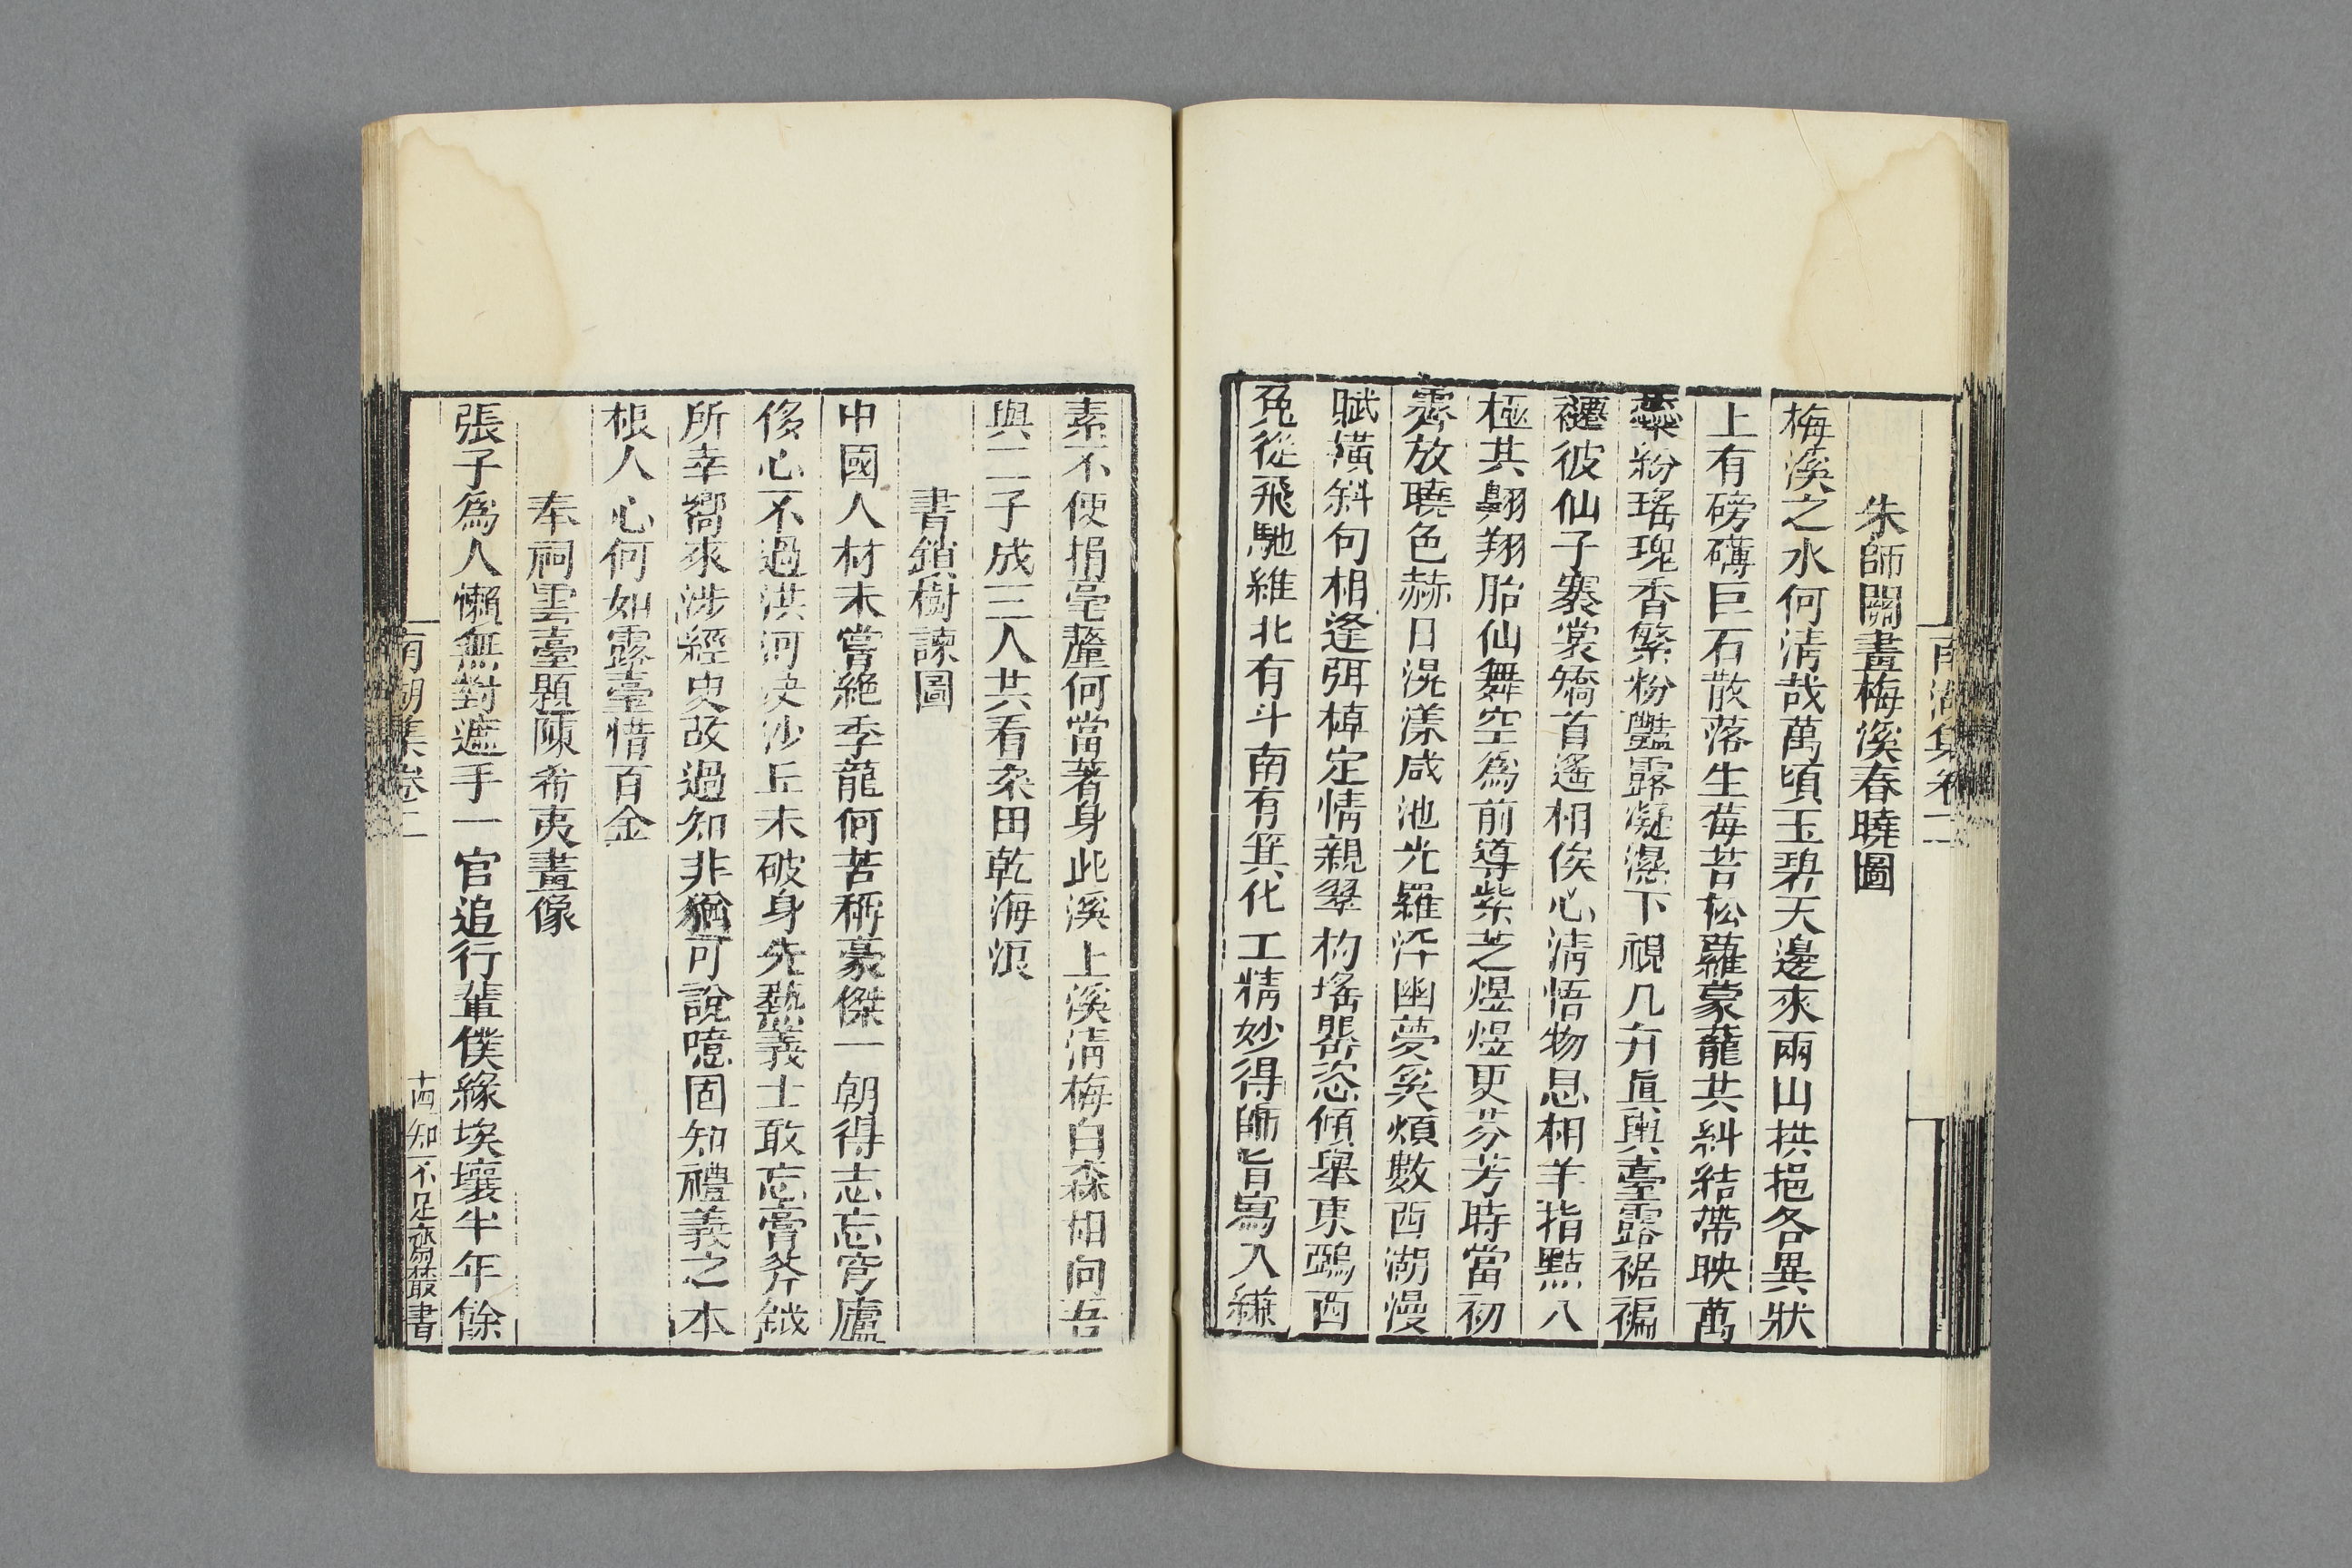 南湖集卷二
朱師關畫梅溪春曉圖
梅溪之水何淸哉萬頃玉碧天邊來兩山拱挹各異狀
上有磅礴巨石散落生莓苔松蘿蒙蘢共糾結帶映萬
蘂粉瑤瑰香繁粉豔露凝濕下視几卉眞輿臺露裾褊
褼彼仙子褰裳矯首遙相俟心淸悟物息相羊指點八
極其翺翔胎仙舞空爲前導紫芝煜煜更芬芳時當初
霽放曉色赫日滉漾咸池光羅浮幽夢奚煩數西湖慢
賦橫斜句相逢弭棹定情親翠杓瑤罌恣傾舉東鵡西
兔從飛馳維北有斗南有箕化工精妙得師旨寫入縑
素不使捐毫釐何當著身此溪上溪淸梅白森相向吾
與二子成三人共看桑田乾海浪
書鎖樹諫圖
中國人材未嘗絕季龍何苦稱豪傑一朝得志忘穹廬
侈心不過洪河決沙丘未破身先爇義士敢忘膏斧鉞
所幸嚮來涉經史改過知非猶可說噫固知禮義之本
根人心何如露臺惜百金
奉祠雲臺題陳希夷畫像
張子爲人懶無對遮手一官追行輩僕緣埃壤半年餘
南湖集卷二
十四知不足齋叢書